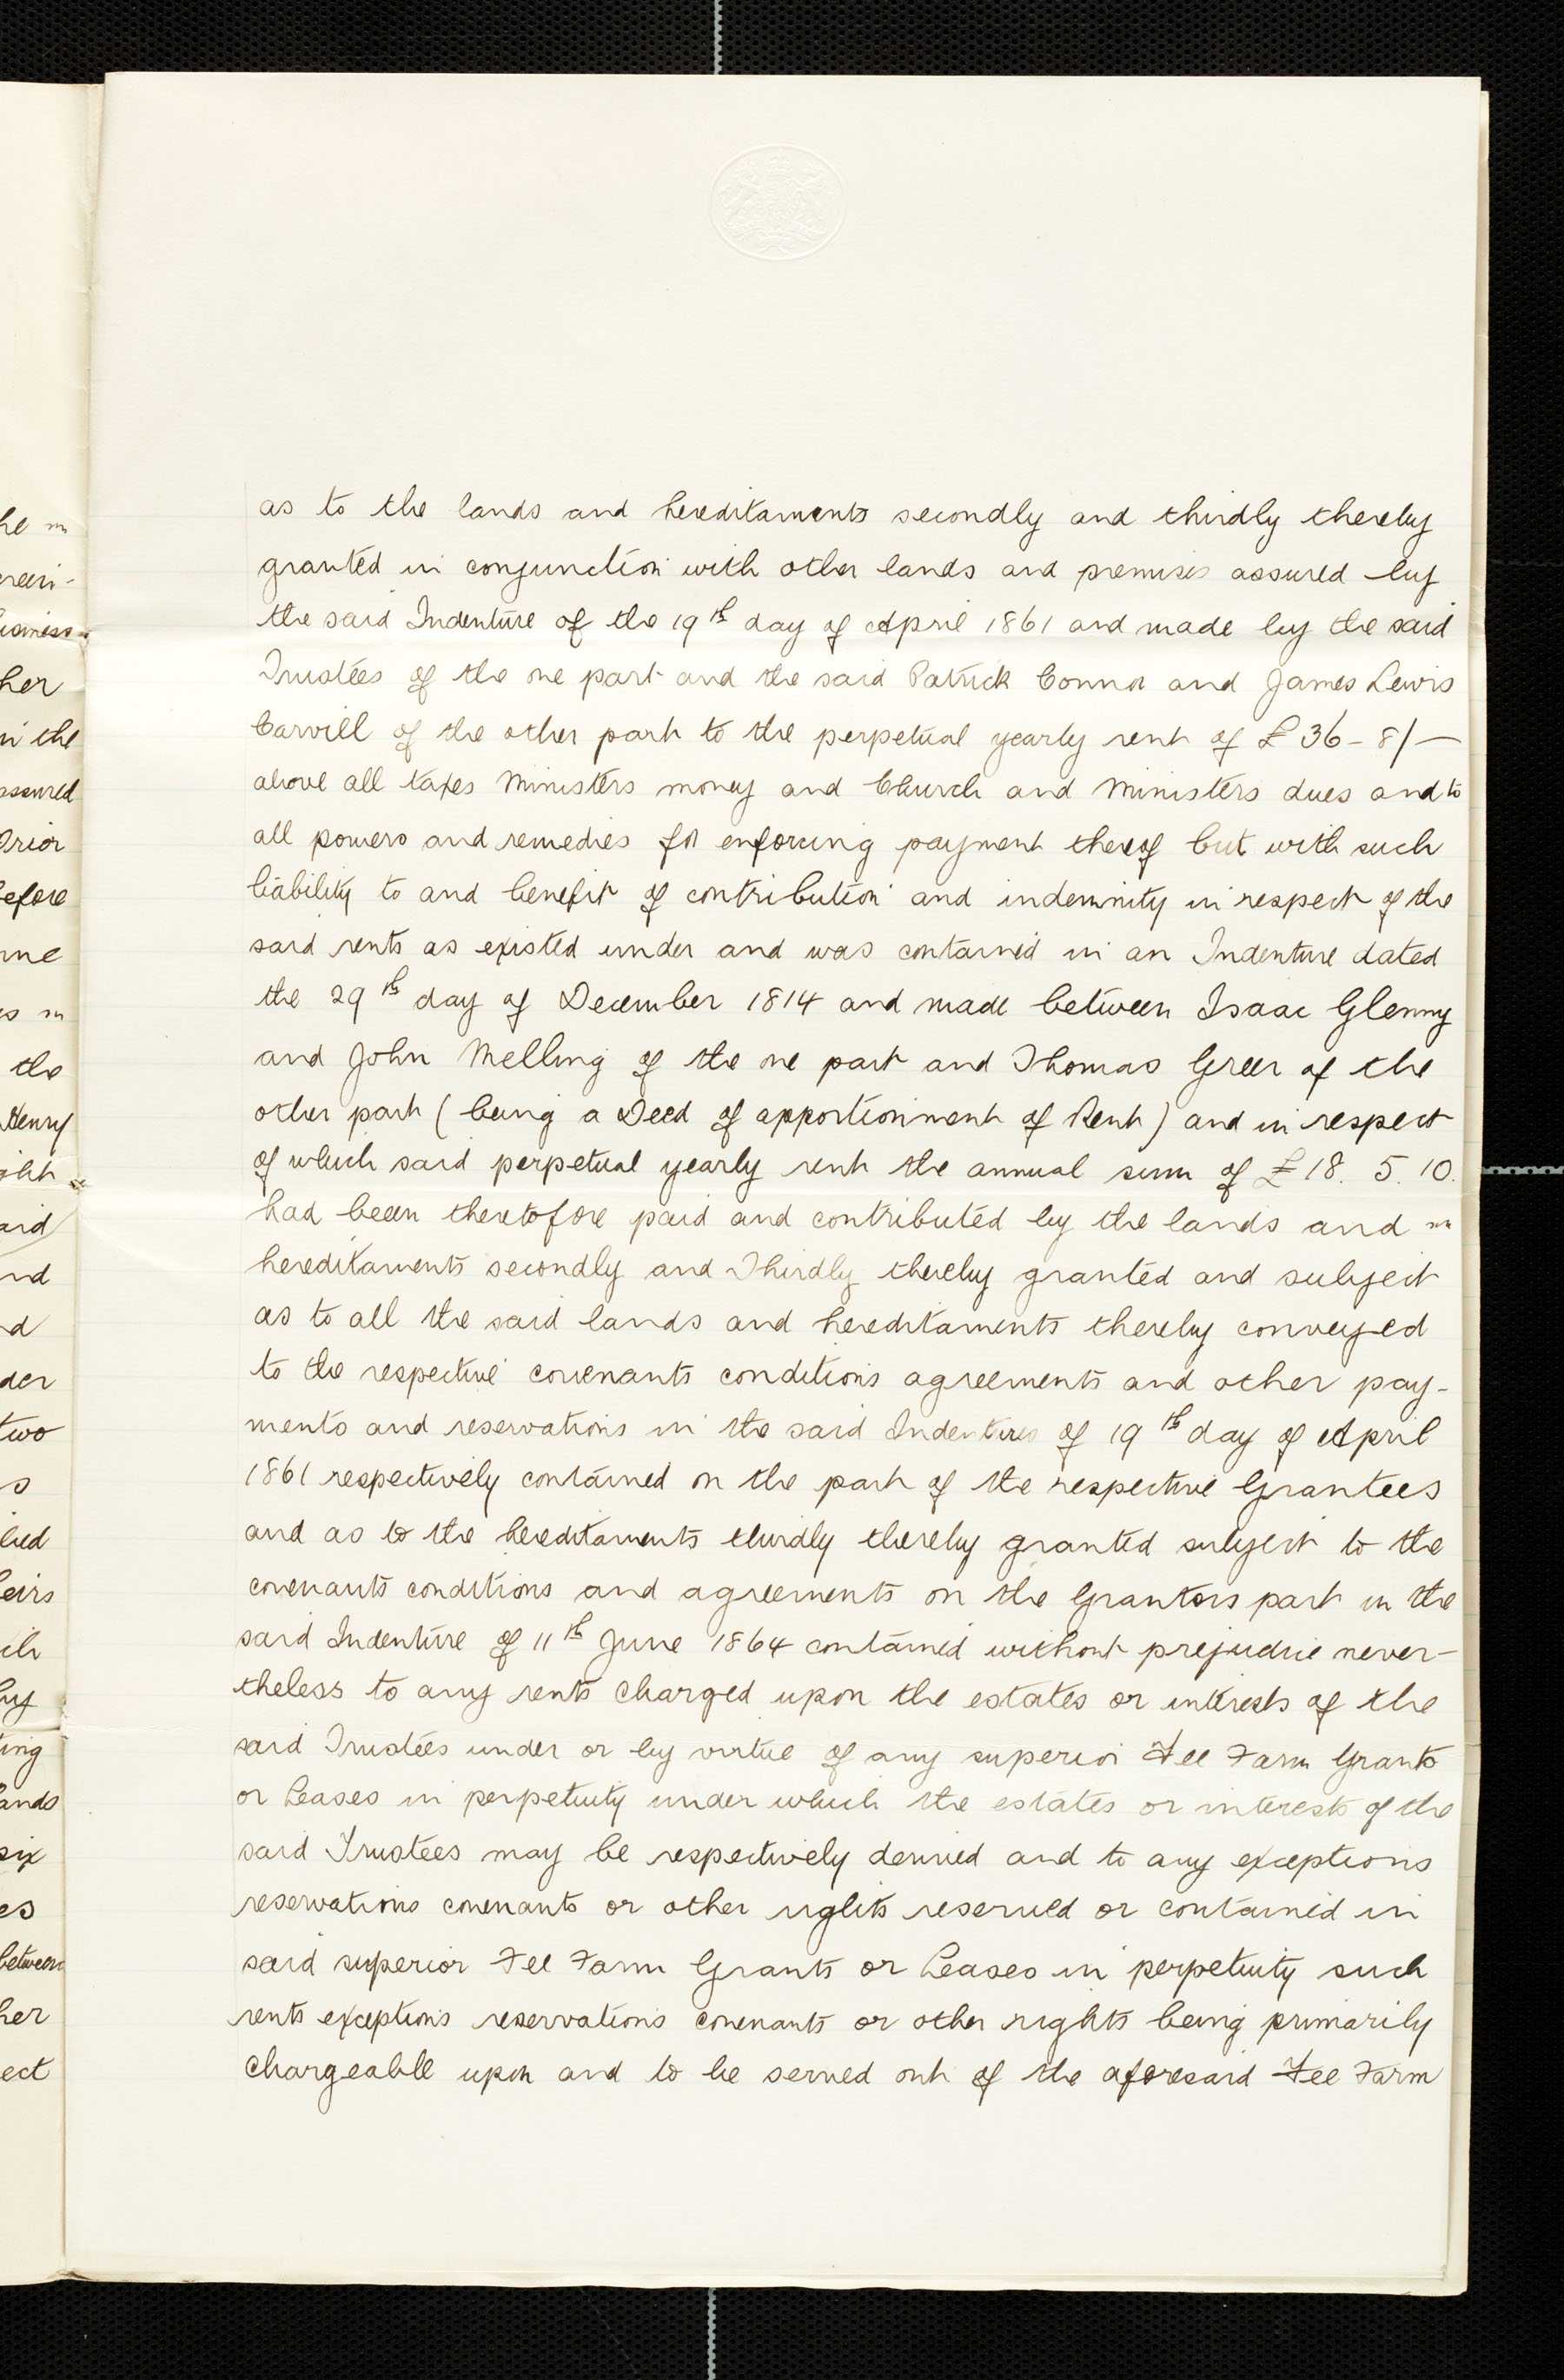 as to the lands and hereditaments secondly and thirdly thereby
granted in conjunction with other lands and premises assured by
the said Indenture of the 19th day of April 1861 and made by the said
Trustees of the one part and the said Patrick Connor and James Lewis
Carvill of the other part to the perpetual yearly rent of £36-8/-
above all taxes Ministers money and Church and Ministers dues and to
all powers and remedies for enforcing payment thereof but with such
liability to and benefit of contribution and indemnity in respect of the
said rents as existed under and was contained in an Indenture dated
the 29th day of December 1814 and made between Isaac Glenny
and John Melling of the one part and Thomas Greer of the
other part (being a Deed of apportionment of Rent) and in respect
of which said perpetual yearly rent the annual sum of £18. 5. 10.
had been theretofore paid and contributed by the lands and
hereditaments secondly and Thirdly thereby granted and subject
as to all the said lands and hereditaments thereby conveyed
to the respective covenants conditions agreements and other pay-
ments and reservations in the said Indentures of 19th day of April
1861 respectively contained on the part of the respective Grantees
and as to the hereditaments thirdly thereby granted subject to the
covenants conditions and agreements on the Grantors part in the
said Indenture of 11th June 1864 contained without prejudice never-
theless to any rents charged upon the estates or interests of the
said Trustees under or by virtue of any superior Fee Farm Grants
or Leases in perpetuity under which the estates or interests of the
said Trustees may be respectively derived and to any exceptions
reservations covenants or other rights reserved or contained in
said superior Fee Farm Grants or Leases in perpetuity such
rents exceptions reservations covenants or other rights being primarily
chargeable upon and to be served out of the aforesaid Fee Farm